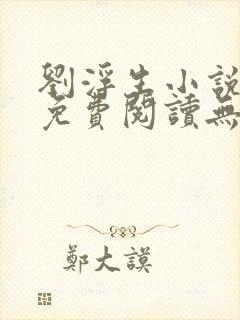 劉浮生小說
免費閱讀無
鄭大謨